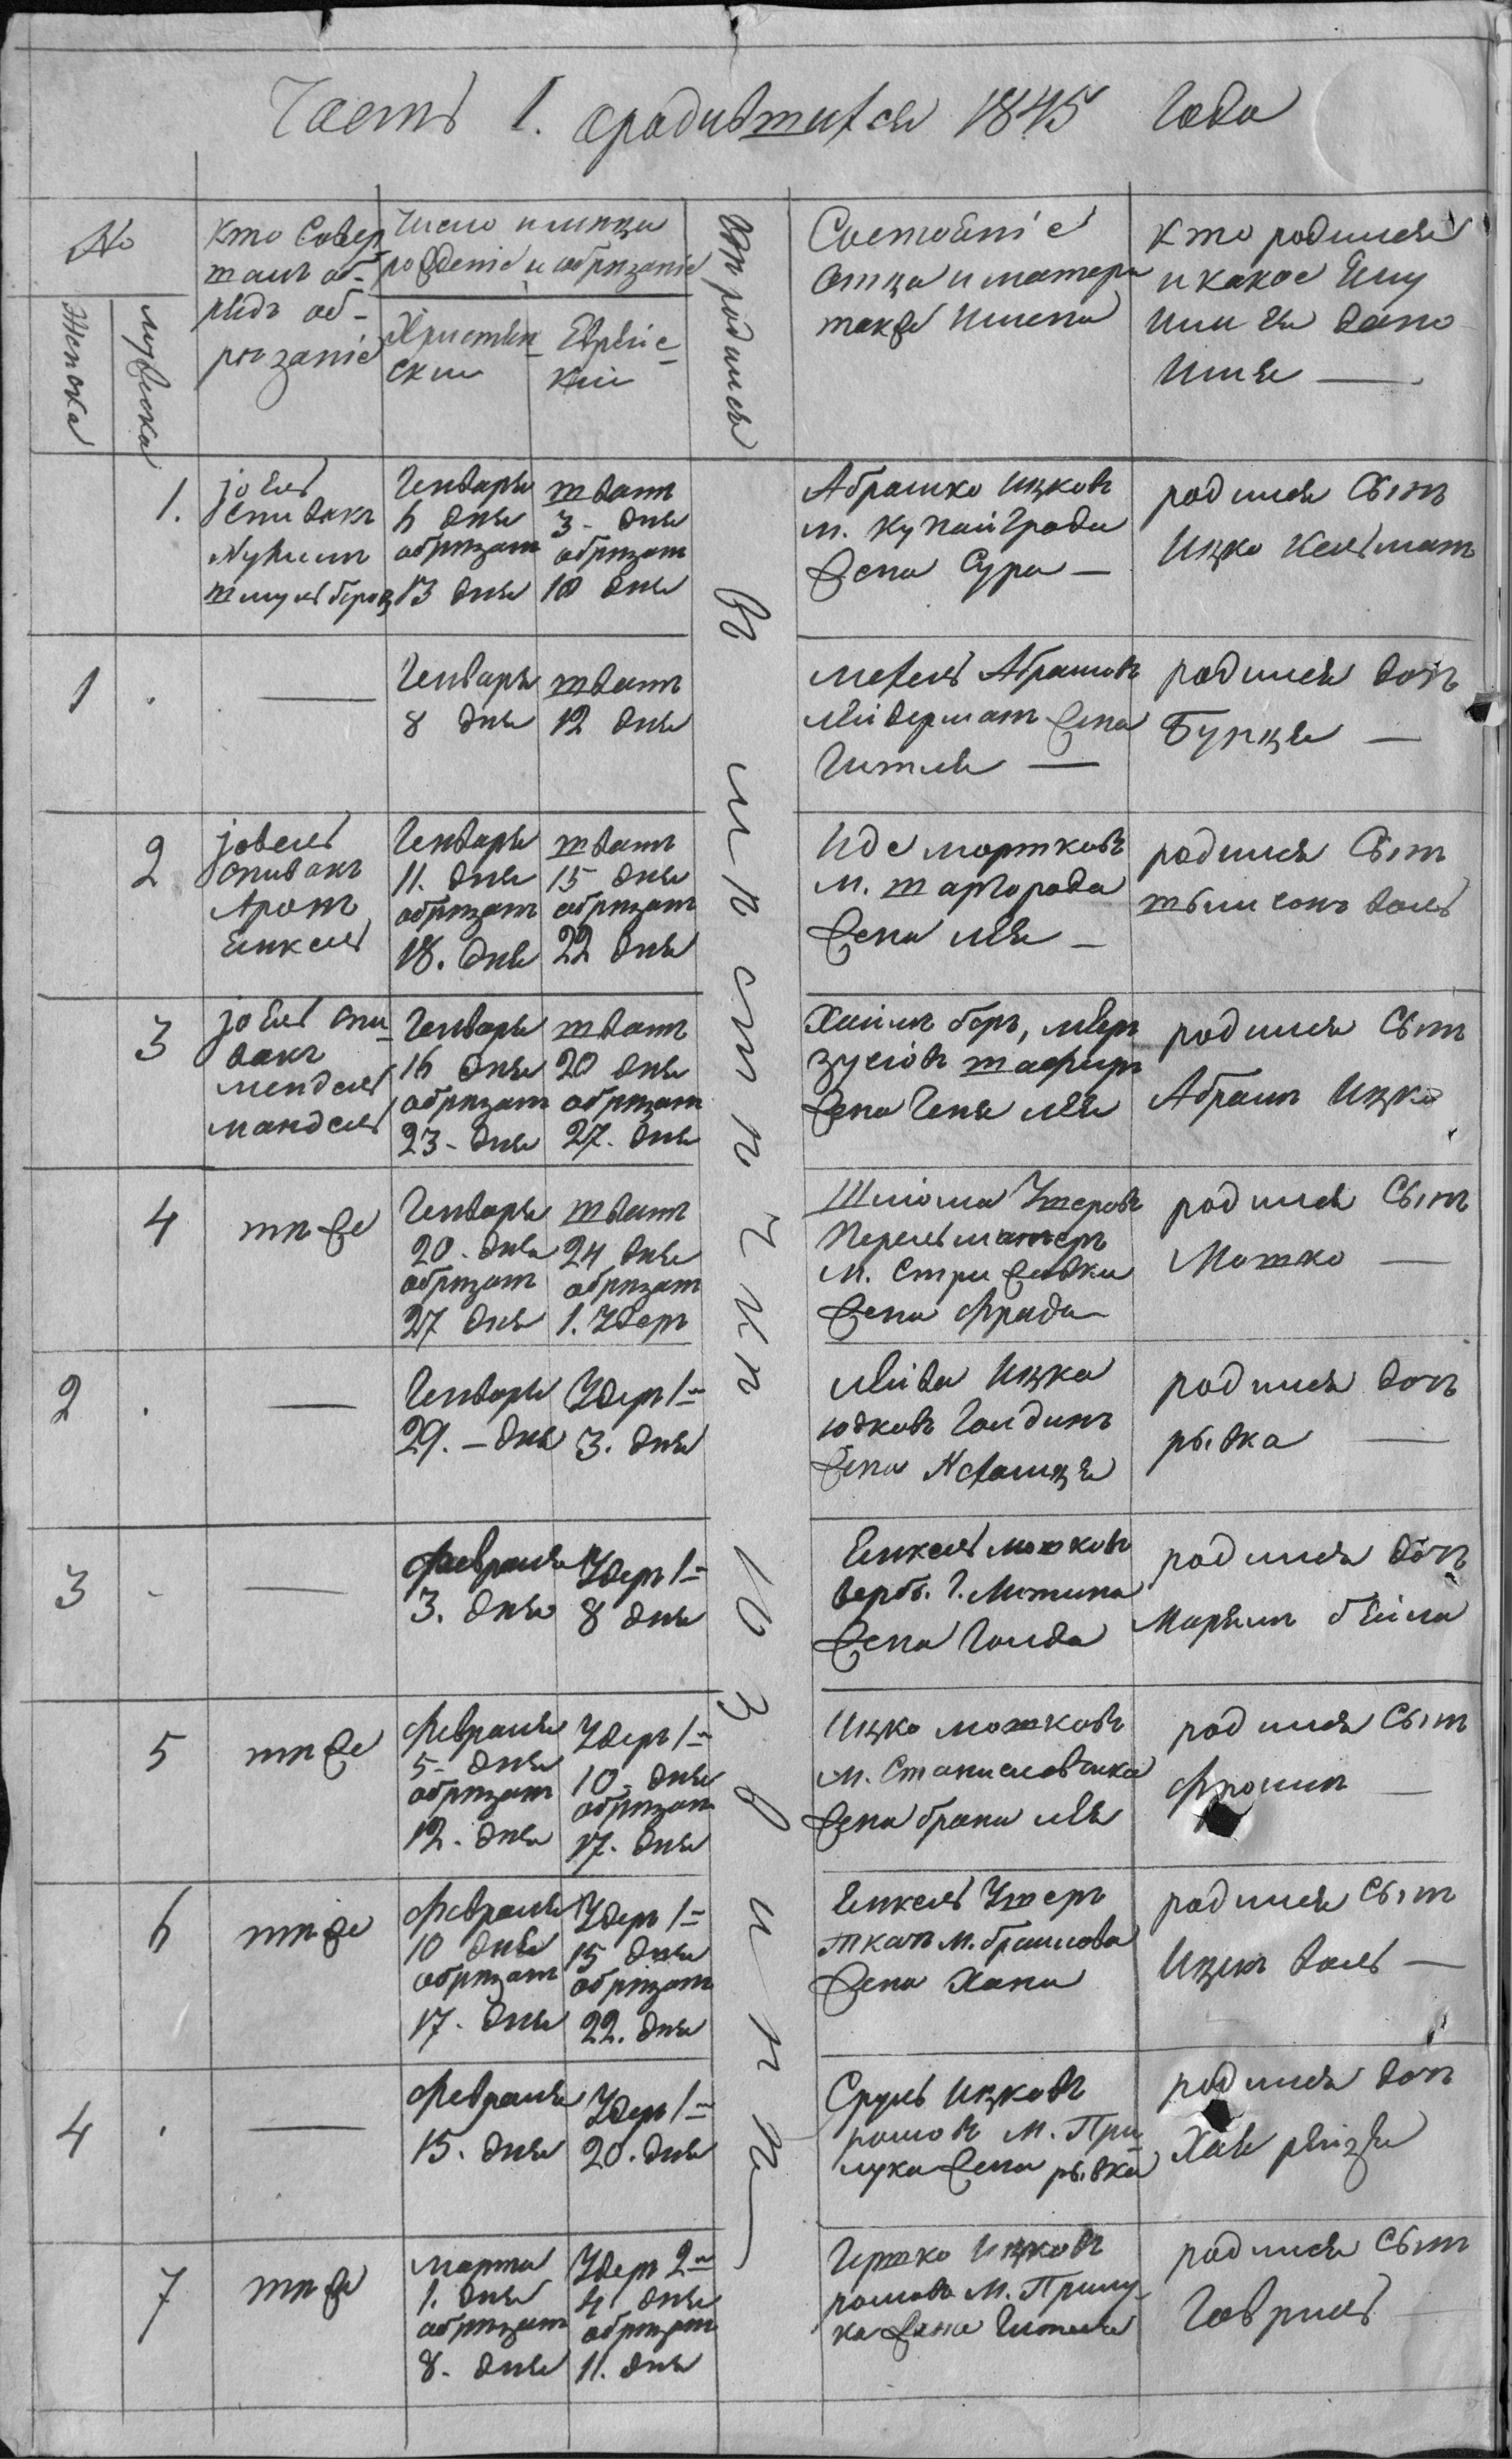 Часть 1. ородившихся 1845 Года
№
Женска
мужска
кто Совер
шалъ об-
рядъ об-
резаніе
Число и мѣсяцы
рожденіе и обрѣзаніе
Христіян
ским
Еврѣйс
кій
Где родился
Состояніе
отца и матери
также имена
кто родился
и какое Ему
или Ея дано
Имя —
1.
јоель
спивакъ
Нухимъ
Генваря
6 дня
обрѣзанъ
13 дня
шватъ
3 - дня
обрѣзанъ
10 дня
Абрамко Ицковъ
м. Купайграда
жена Сура —
родился Сынъ
Ицко Кельманъ
1 . —
Генваря
8 дня
шватъ
12 дня
Абрамовъ
жена
Гитля —
родился дочъ
Бунця —
2
јовель
спивакъ
Аронъ
Енкель
Генваря
11. дня
обрѣзанъ
18. дня
шватъ
15 дня
обрѣзанъ
22 дня
Иде мортковъ
м. шаргорода
жена лѣя —
родился Сынъ
воль
3
јоель спи
вакъ
мендель
мандель
Генваря
16 дня
обрѣзанъ
23 - дня
шватъ
20 дня
обрѣзанъ
27. дня
Хаимъ беръ, мееръ
зусіовъ шафиръ
жена Геня лѣя
родился Сынъ
Абрамъ Ицко
4
тѣже
Генваря
20. дня
обрѣзанъ
27 дня
шватъ
24 дня
обрѣзанъ
1. Удеръ
Шліома Ушеровъ
м. Стрижавки
жена Фрада
родился Сынъ
Мошко —
2 . —
Генваря
29. – дня
Удеръ 1-
3. дня
лейва Ицка
юдковъ Голдинъ
жена Нехамця
родился дочъ
рывка —
3 - —
февраля
3. дня
Удеръ 1-
8 дня
Енкель мошковъ
верб. г. Литина
жена Голда
родился дочъ
Марямъ бейла
5
тѣже
февраля
5 - дня
обрѣзанъ
12. дня
Удеръ 1-
10 - дня
обрѣзанъ
17. дня
Ицко мошковъ
м. Станиславчика
жена брана лѣя
родился Сынъ
Фроимъ —
6
тѣже
февраля
10 дня
обрѣзанъ
17. дня
Удеръ 1-
15 дня
обрѣзанъ
22. дня
Енкель Ушеръ
ткачъ м. браилова
жена Хана
родился Сынъ
Ицекъ воль —
4 . —
февраля
15. дня
Удеръ 1-
20. дня
Сруль Ицковъ
м. При
лука жена рывка
родился дочъ
Хая рейзя
7
тѣже
марта
1. дня
обрѣзанъ
8. дня
Удеръ 2-
4 дня
обрѣзанъ
11. дня
Гершко Ицковъ
м. Прилу
ка жена Гитля
родился Сынъ
Гавриль —
въ мѣстѣчкѣ